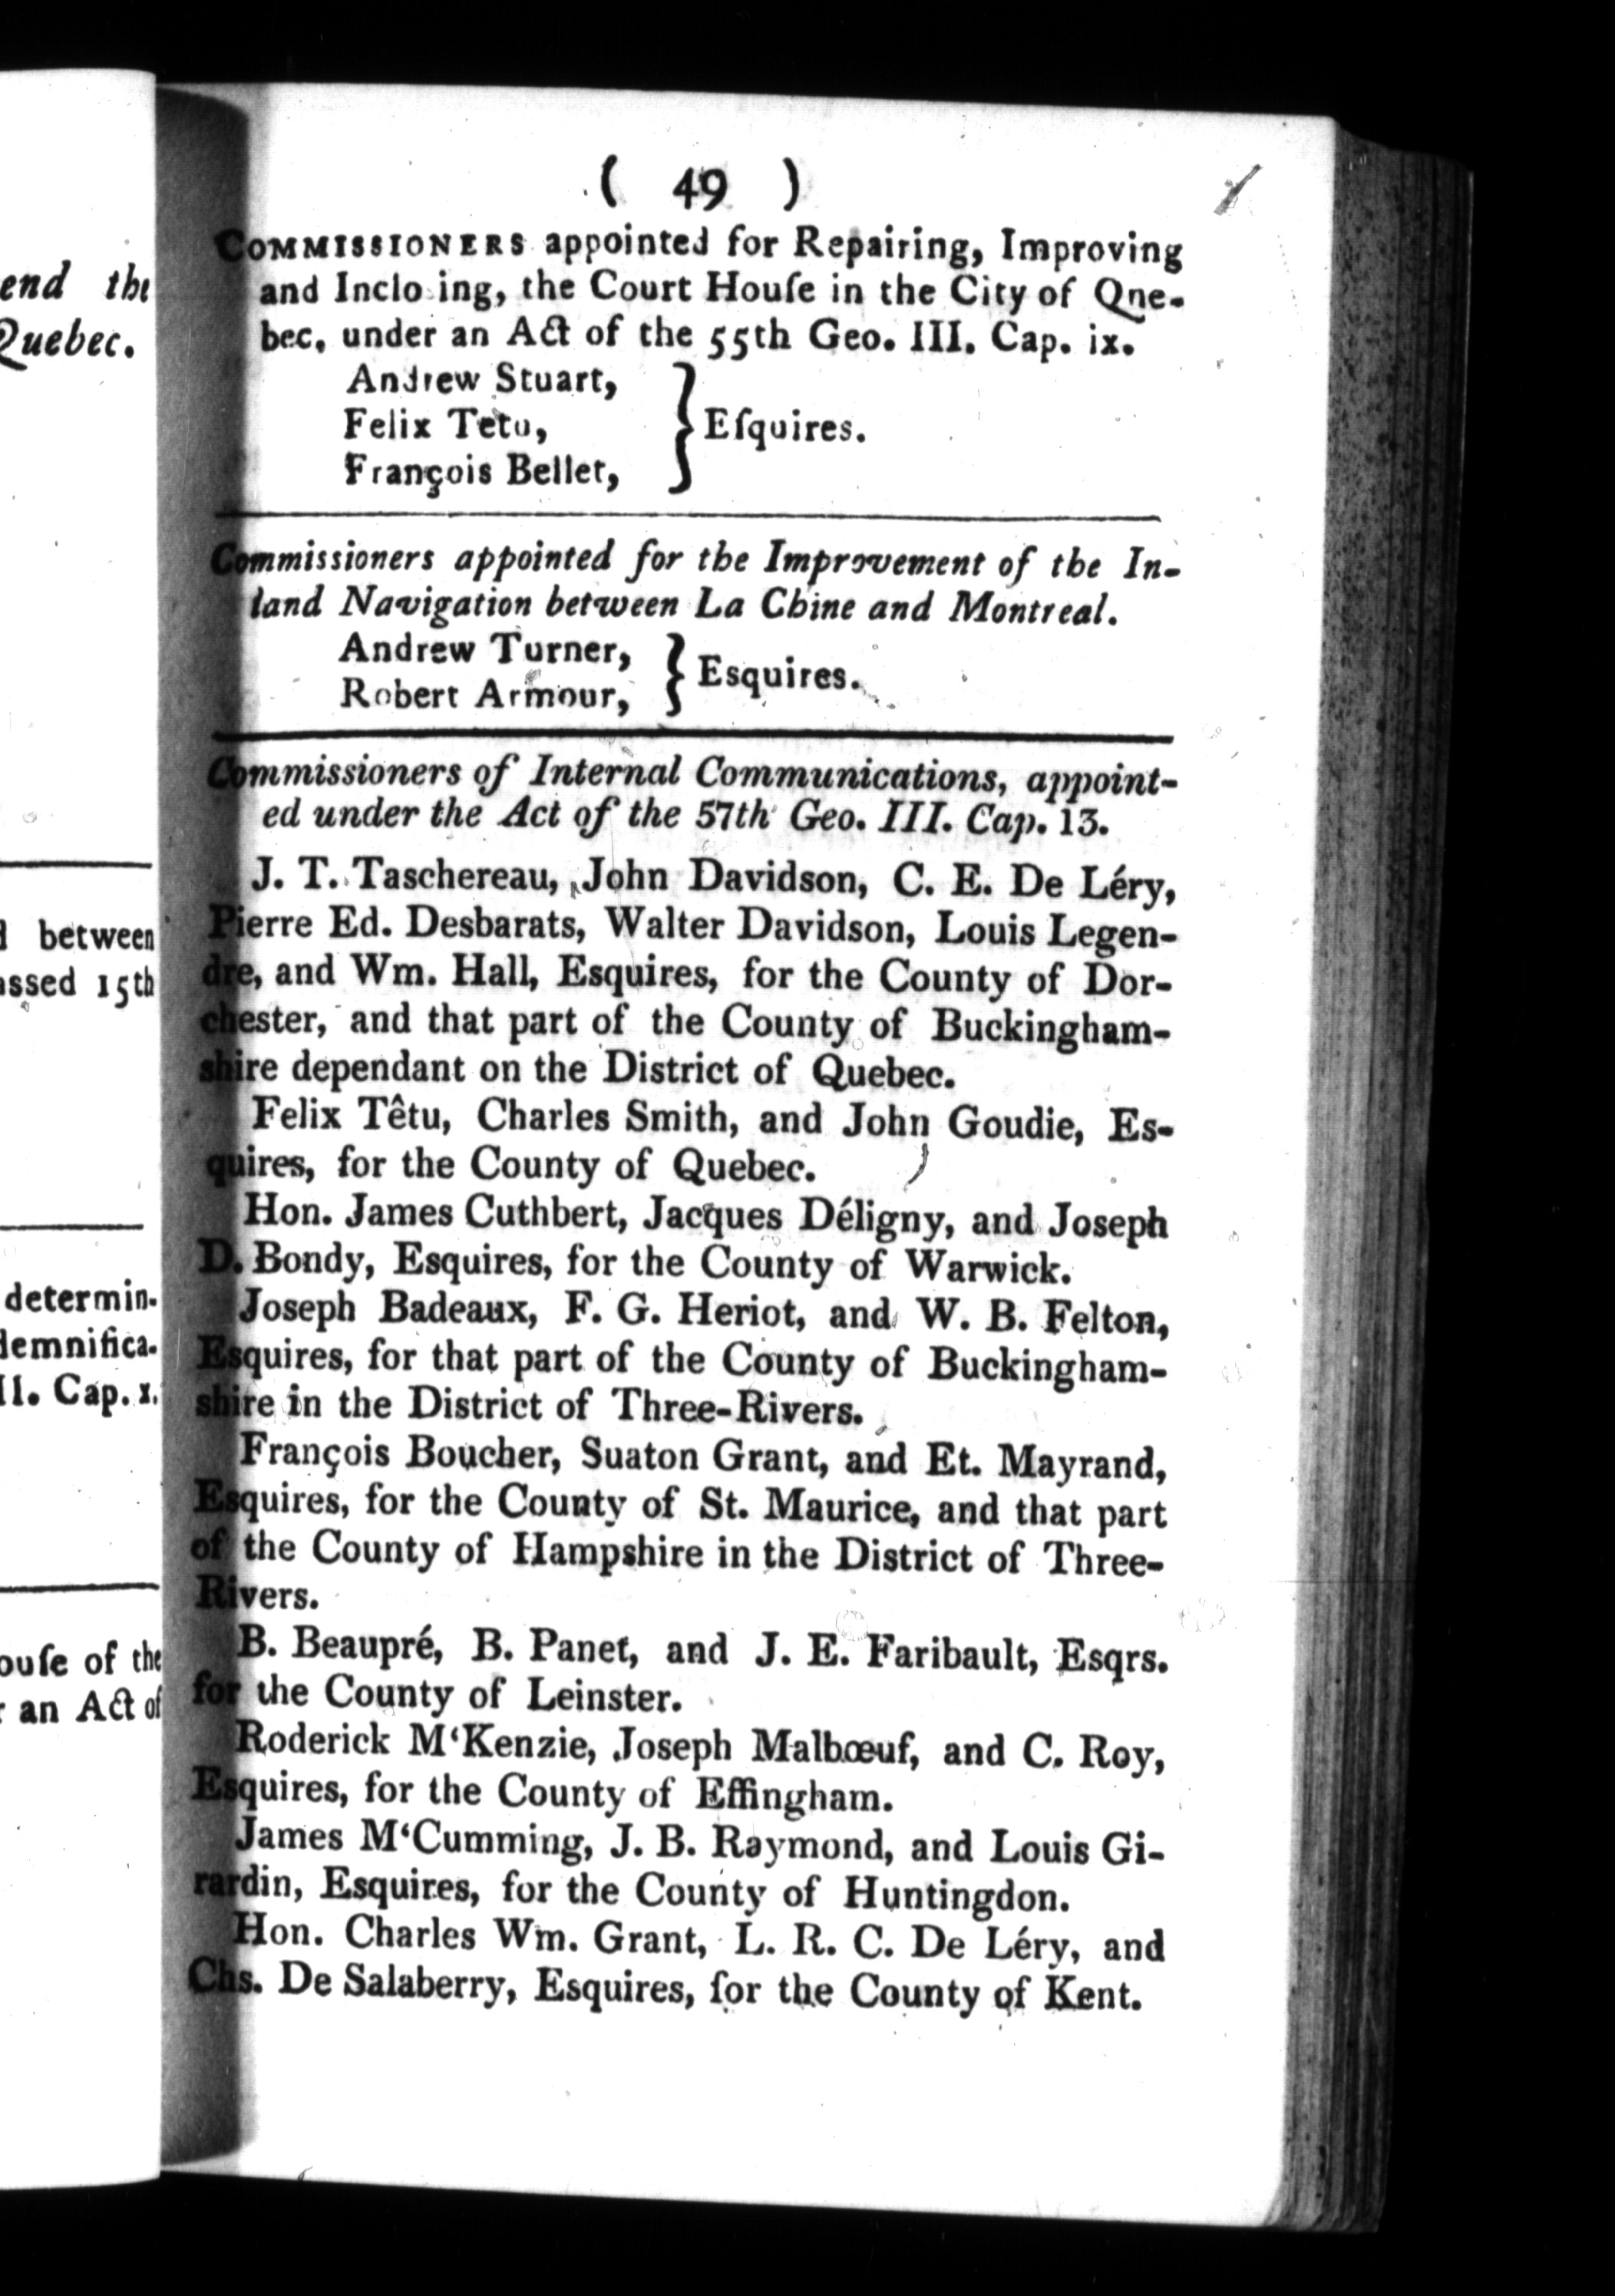 end the
Quebec.
between
assed 15th
determin-
demnifica-
II. Cap. x.
ouſe of the
an Act of
( 49 )
COMMISSIONERS appointed for Repairing, Improving
and Inclo ing, the Court Houſe in the City of Qne-
bec, under an Act of the 55th Geo. III. Cap. ix.
Andrew Stuart,
Felix Tetu,
François Bellet,
} Eſquires.
Commissioners appointed for the Improvement of the In-
land Navigation between La Chine and Montreal.
Andrew Turner,
Robert Armour,
} Esquires.
Commissioners of Internal Communications, appoint-
ed under the Act of the 57th Geo. III. Cap. 13.
J. T. Taschereau, John Davidson, C. E. De Léry,
Pierre Ed. Desbarats, Walter Davidson, Louis Legen-
dre, and Wm. Hall, Esquires, for the County of Dor-
chester, and that part of the County of Buckingham-
shire dependant on the District of Quebec.
Felix Têtu, Charles Smith, and John Goudie, Es-
quires, for the County of Quebec.
Hon. James Cuthbert, Jacques Déligny, and Joseph
D. Bondy, Esquires, for the County of Warwick.
Joseph Badeaux, F. G. Heriot, and W. B. Felton,
Esquires, for that part of the County of Buckingham-
shire in the District of Three-Rivers.
François Boucher, Suaton Grant, and Et. Mayrand,
Esquires, for the County of St. Maurice, and that part
of the County of Hampshire in the District of Three-
Rivers.
B. Beaupré, B. Panet, and J. E. Faribault, Esqrs.
for the County of Leinster.
Roderick M‘Kenzie, Joseph Malbœuf, and C. Roy,
Esquires, for the County of Effingham.
James M‘Cumming, J. B. Raymond, and Louis Gi-
rardin, Esquires, for the County of Huntingdon.
Hon. Charles Wm. Grant, L. R. C. De Léry, and
Chs. De Salaberry, Esquires, for the County of Kent.